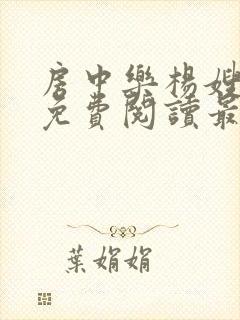 房中樂楊嫂
免費閱讀最
葉娟娟